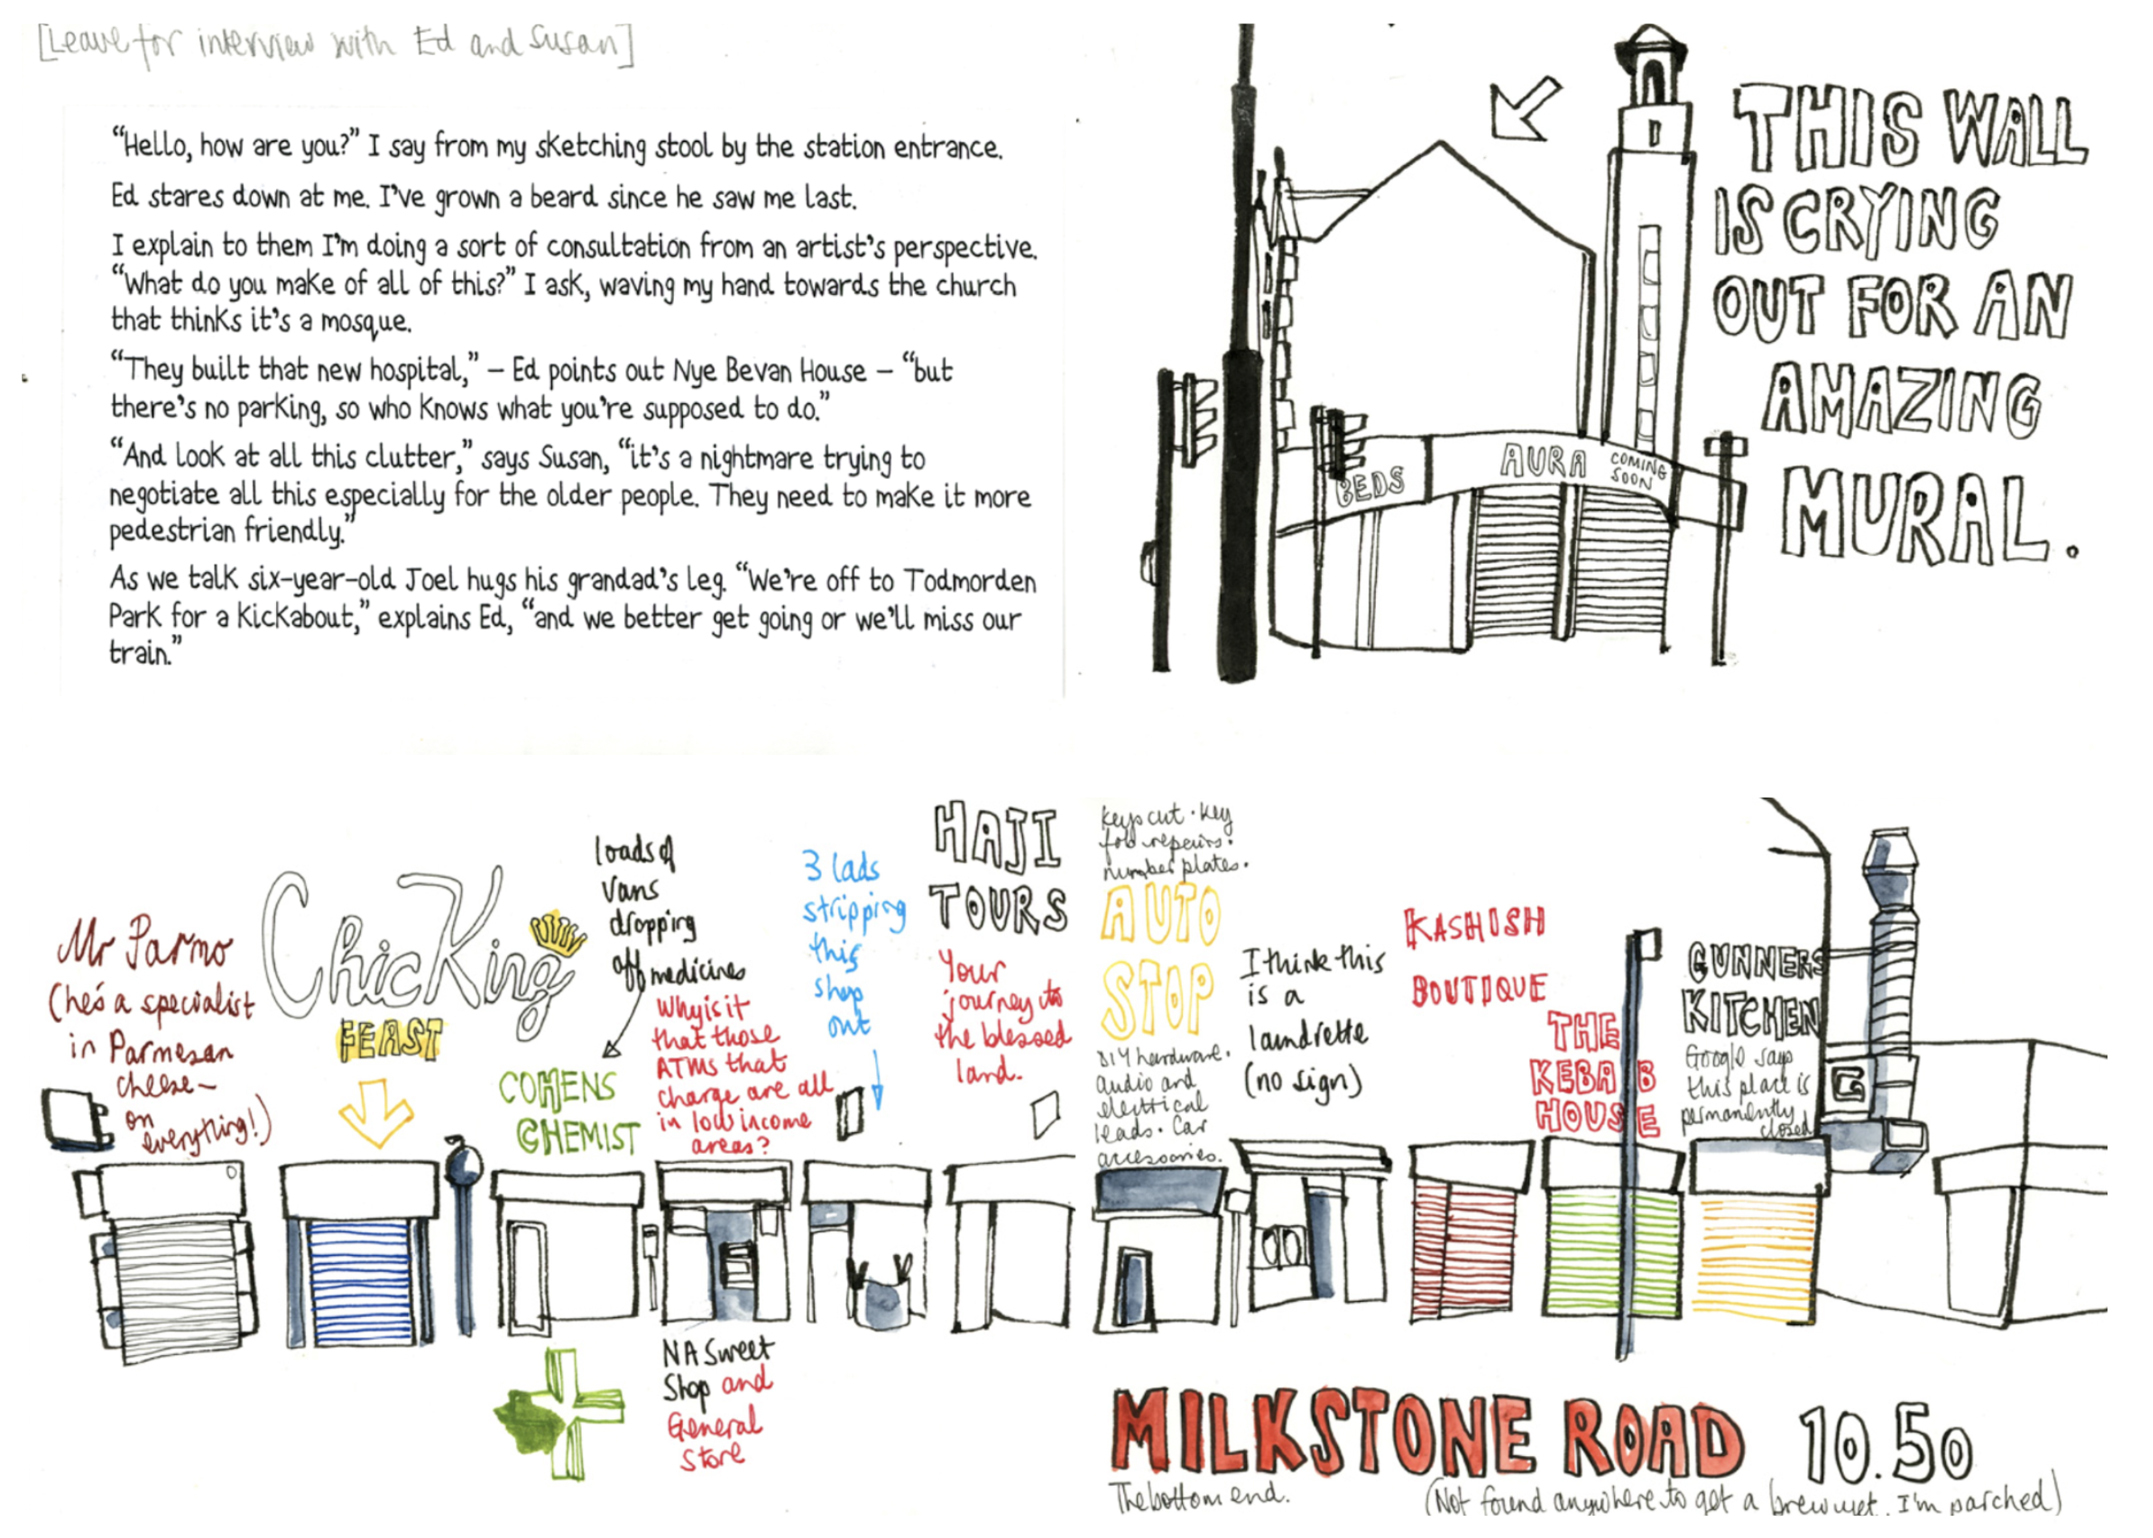 [Leave for interview with Ed and Susan]
“Hello, how are you?” I say from my sketching stool by the station entrance.
Ed stares down at me. I’ve grown a beard since he saw me last.
I explain to them I’m doing a sort of consultation from an artist’s perspective.
“What do you make of all of this?” I ask, waving my hand towards the church
that thinks it’s a mosque.
“They built that new hospital,” – Ed points out Nye Bevan House – “but
there’s no parking, so who knows what you’re supposed to do.”
“And look at all this clutter,” says Susan, “it’s a nightmare trying to
negotiate all this especially for the older people. They need to make it more
pedestrian friendly.”
As we talk six-year-old Joel hugs his grandad’s leg. “We’re off to Todmorden
Park for a kickabout,” explains Ed, “and we better get going or we’ll miss our
train.”
THIS WALL
IS CRYING
OUT FOR AN
AMAZING
MURAL.
BEDS
AURA
COMING
SOON
Mr Parmo
(he's a specialist
in Parmesan
cheese –
on
everything!)
ChicKing
FEAST
loads of
vans
dropping
off medicines
COHENS
CHEMIST
Why is it
that those
ATMs that
charge are all
in low income
areas?
NA Sweet
Shop and
General
Store
3 lads
stripping
this
shop
out
HAJI
TOURS
Your
journey to
the blessed
land.
Keys cut · key
fob repairs ·
number plates.
AUTO
STOP
DIY hardware.
audio and
electrical
leads. Car
accessories.
I think this
is a
laundrette
(no sign)
KASHISH
BOUTIQUE
THE
KEBAB
HOUSE
GUNNERS
KITCHEN
Google says
this place is
permanently
closed
G
MILKSTONE ROAD 10.50
The bottom end.
(Not found anywhere to get a brew yet. I'm parched)